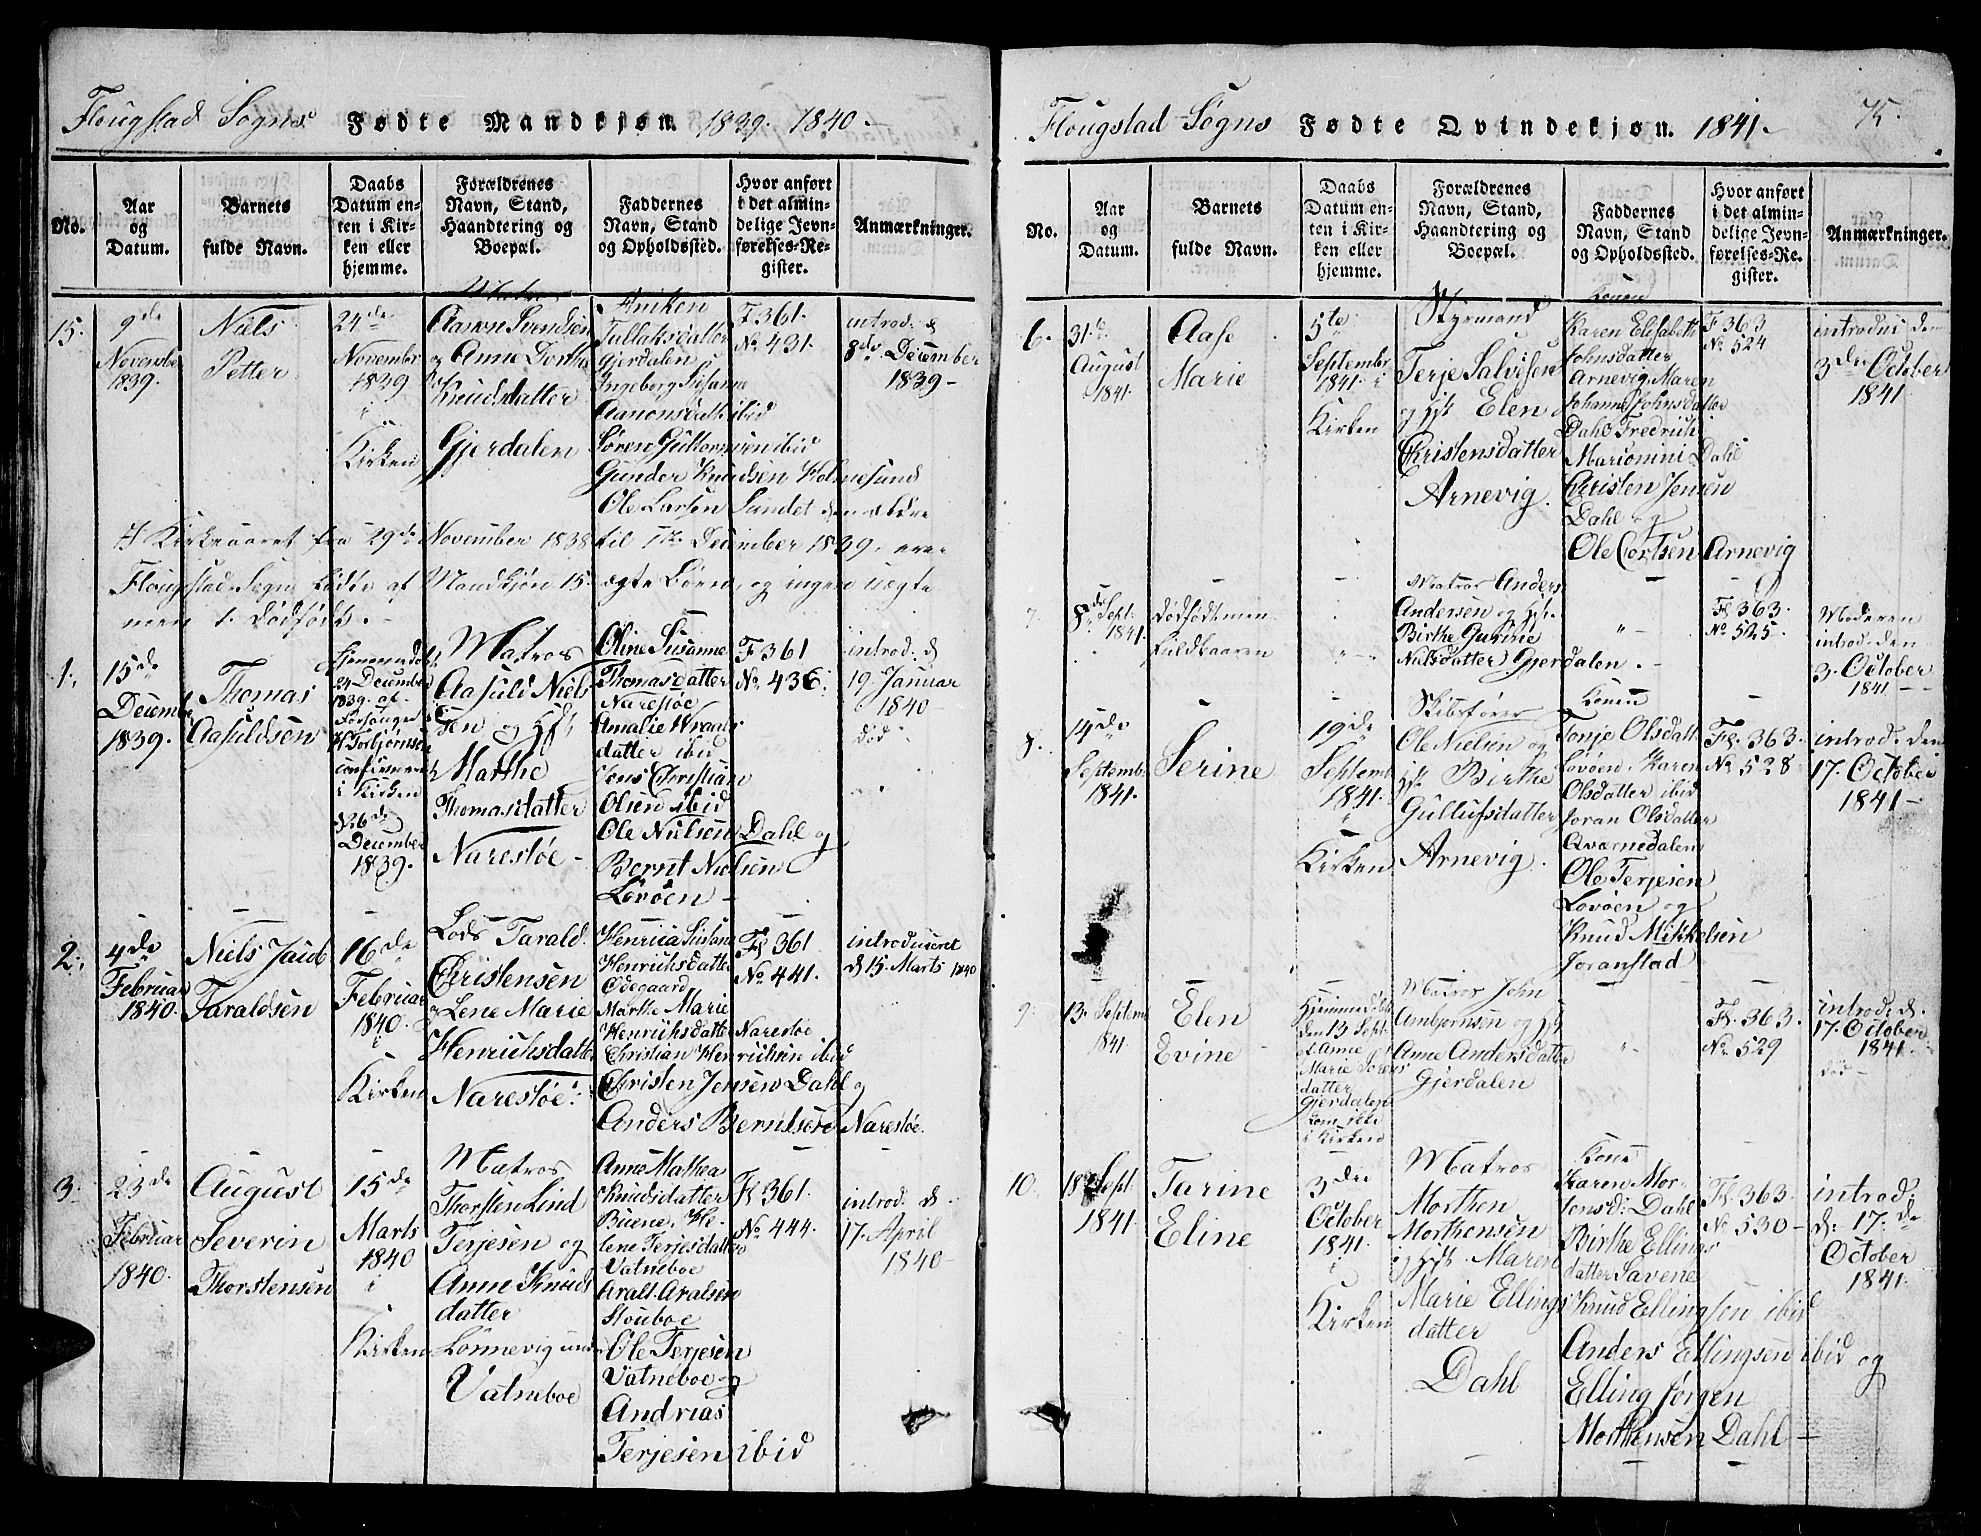 Flougstad Sogns Fødte Mandkjøn. 1839. 1840.
No.
Aar
og
Datum.
Barnets
fulde Navn.
Daabs
Datum en-
ten i Kir-
ken eller
hjemme.
Forældrenes
Navn, Stand,
Haandtering og
Boepæl.
Faddernes
Navn, Stand
og Opholdssted.
Hvor anført
i det almin-
delige Jevn-
førelses-Re-
gister.
Anmærkninger.
15.
9de
Novembr
1839.
Niels
Petter
24de
Novembr
1839
i
Kirken
Matros
Aawn Svendsen
og Anne Dorthe
Knudsdatter
Gjerdalen
Aniken
Tallaksdatter
Gjerdalen
Ingeborg Susanne
Aanonsdatt ibid
Søren Guttormsen ibid
Gunder Knudsen Holmesund
Ole Larsen Sundet
F 361.
No 431.
introd. d
8de December
1839 -
I Kirkeaaret fra 29de November 1838 til 1ste December 1839 ere
Flougstad Sogn fødte af Mandkjøn 15. ægte Børn, og ingen uægte
men 1. Dødfødt. -
1.
15de
Decembr
1839.
Thomas
Aasuldsen
Hjemmedøbt
24 December
1839 af
Forsanger
Torbjørnsen
confirmeret
i Kirken
26de
December
1839.
Matros
Aasuld Niels
sen og Hst
Marthe
Thomasdatter
Narestøe -
Oline Susanne
Thomasdatter
Narestøe
Amalie
datter ibid
Jens Christian
Olsen ibid
Ole Nielsen Dahl og
Bernt Nielsen
Lovøen -
F 361
No 436.
introd. d
19. Januar
1840 -
død.
2.
4de
Februar
1840.
Niels Jacob
Taraldsen
16de
Februar
1840.
i
Kirken
Lods Tarald
Christensen
og Lene Marie
Henrichsdatter
Narestøe.
Henrica Susanne
Henrichsdatter
Ødegaard
Marthe Marie
Henrichsdatter Narestøe
Christian Henrichsen ibid
Christen Jensen Dahl og
Anders Berntsen Narestøe.
Fl 361
No 441.
introduceret
d 15. Marts 1840
3.
23de
Februar
1840.
August
Severin
Thorstensen
15de
Marts
1840
i
Kirken
Matros
Thorsten Lind
Terjesen og
Anne Knuds
datter
Lonnevig under
Vatneboe
Anne Mathea
Knudsdatter
Buene, He-
lene Terjesdatter
Vatneboe
Aralt Aralsen
Stouboe
Ole Terjesen
Vatneboe og
Andrias
Terjesen ibid
Fl 361.
No 444.
introd. d.
17. April
1840 -
Flougstad Sogns Fødte Qvindekjøn. 1841.
75.
No.
Aar
og
Datum.
Barnets
fulde Navn.
Daabs
Datum en-
ten i Kir-
ken eller
hjemme.
Forældrenes
Navn, Stand,
Haandtering og
Boepæl.
Faddernes
Navn, Stand
og Opholdssted.
Hvor anført
i det almin-
delige Jevn-
førelses-Re-
gister.
Anmærkninger.
6.
31te
August
1841.
Aase
Marie
5te
Septembr
1841. i
Kirken
Styrmand
Terje Salvesen
og Hst Elen
Christensdatter
Arnevig.
Konen
Karen Elisabeth
Johnsdatter
Arnevig, Maren
Johanne Johnsdatter
Dahl Fredrich
Marionini Dahl
Christen Jensen
Dahl og
Ole Cortsen Arnevig
Fl 363
No 524
introdus den
3die October
1841
7.
8de Sept.
1841.
Dødfødt men
fuldbaaren
Matros Anders
Andersen og Hst
Birthe Gurine
Nielsdatter Gjerdalen. -
Fl. 363.
No 525.
Moderen
introd. den
3. October
1841. - -
8.
14de
Septemb
1841.
Serine
19de
Septemb
1841.
i
Kirken
Skibsfører
Ole Nielsen og
Hst Birthe
Gullufsdatter
Arnevig.
Konen
Tonje Olsdatt
Lovøen, Karen
Olsdatter ibid
Joran Olsdatter
Qværnedalen
Ole Terjesen
Lovøen og
Knud Mikkelsen
Joranstad
Fl. 363.
No 528
introd. den
17. October
1841 -
9.
13. Septemb
1841
Elen
Evine
Hjemmedøbt
den 13 Sept.
af Anne
Marie Sørens
datter
Gjerdalen
kom ikke
i Kirken
Matros John
Arnbjørnsen og Hst
Anne Andersdatter
Gjerdalen
Fl. 363.
No 529
introd. d.
17. October
1841.
død -
10.
18 Sept
1841.
Tarine
Eline
3die
October
1841.
i
Kirken
Matros
Morthen
Morthensen
og Hst. Maren
Marie Ellings
datter
Dahl
Kone
Karen Mor-
tensd: Dahl
Birthe Ellings
datter Savene
Knud Ellingsen ibid
Anders Ellingsen ibid og
Elling Jørgen
Morthensen Dahl -
Fl. 363.
No 530 -
introd.
d: 17.de
October
1841.